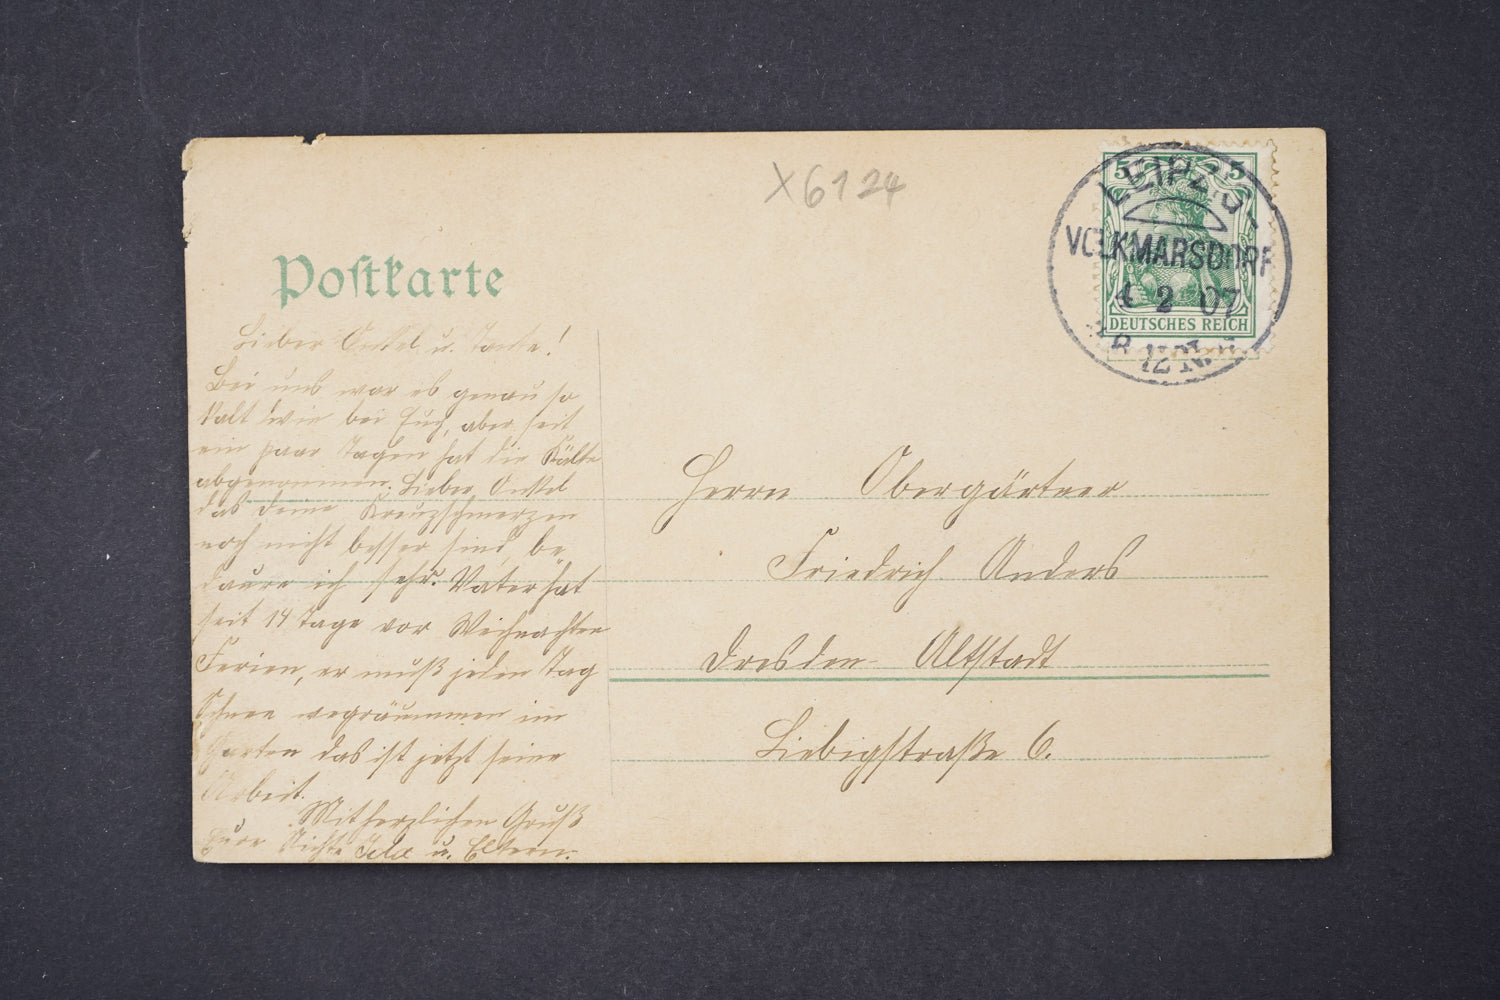 X6124
5 5
LEIPZIG-
VOLKMARSDORF
4 2 07
DEUTSCHES REICH
Postkarte
Lieber Onkel u. Tante!
Bei uns war es genau so
kalt wie bei Euch, aber seit
ein paar Tagen hat die Kälte
abgenommen. Lieber Onkel
das deine Kreuzschmerzen
noch nicht besser sind, be-
daure ich sehr. Vater hat
seit 14 Tage vor Weihnachten
Ferien, er muß jeden Tag
Schnee wegräummen im
Garten das ist jetzt seine
Arbeit.
Mit herzlichen Gruß
Eure Nichte u. Eltern.
Herrn Obergärtner
Friedrich Anders
Dresden-Altstadt
Liebigstraße 6.